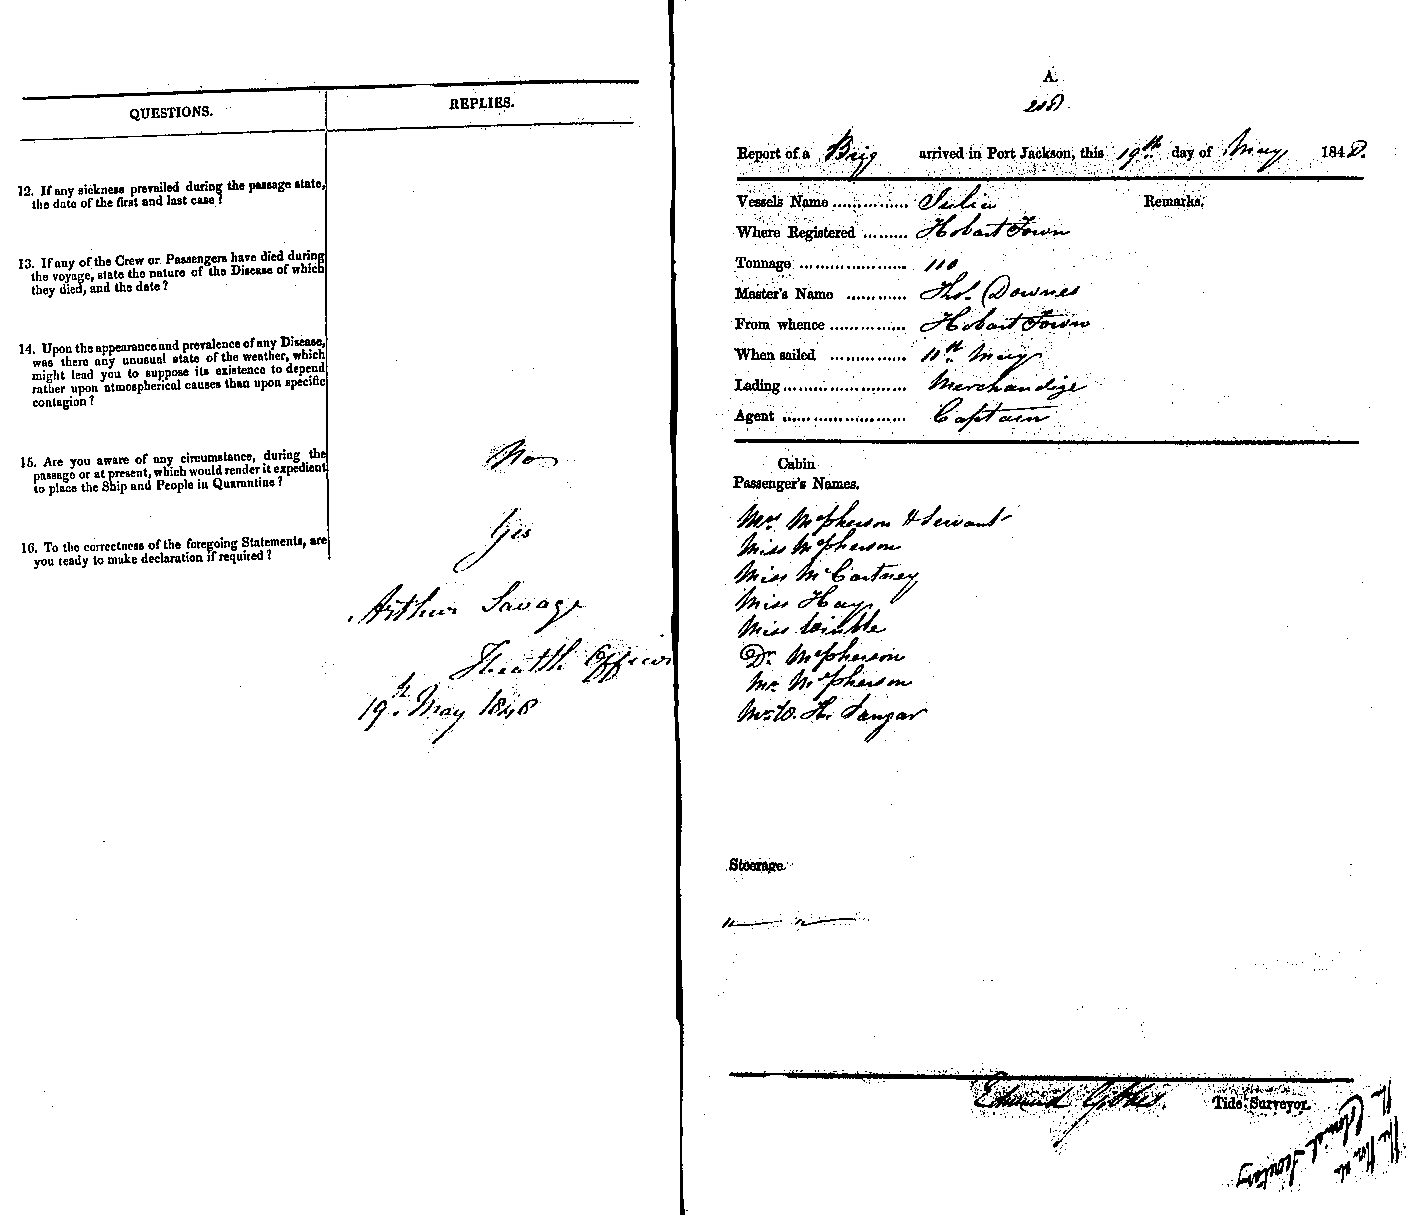 QUESTIONS.
REPLIES.
12. If any sickness prevailed during the passage state,
the date of the first and last case?
13. If any of the Crew or Passengers have died during
the voyage, state the nature of the Disease of which
they died, and the date?
14. Upon the appearance and prevalence of any Disease,
was there any unusual state of the weather, which
might lead you to suppose its existence to depend
rather upon atmospherical causes than upon specific
contagion?
15. Are you aware of any circumstance, during the
passage or at present, which would render it expedient
to place the Ship and People in Quarantine?
No
16. To the correctness of the foregoing Statements, are
you ready to make declaration if required?
Yes
Arthur Savage
Health Officer
19th May 1848
A.
Report of a Brig arrived in Port Jackson, this 19th day of May 1848.
Vessels Name ............... Julia
Remarks.
Where Registered ......... Hobart Town
Tonnage ..................... 110
Master's Name ............ Thos. Downes
From whence ............... Hobart Town
When sailed ............... 11th May
Lading........................ Merchandize
Agent ........................ Captain
Cabin
Passenger's Names.
Mrs. McPherson & Servant
Miss McPherson
Miss McCartney
Miss Hay
Miss Winkle
Dr. McPherson
Mr. McPherson
Mr. W. H. Sangar
Steerage
" "
Tide Surveyor.
The Hon. the
Colonial Secretary